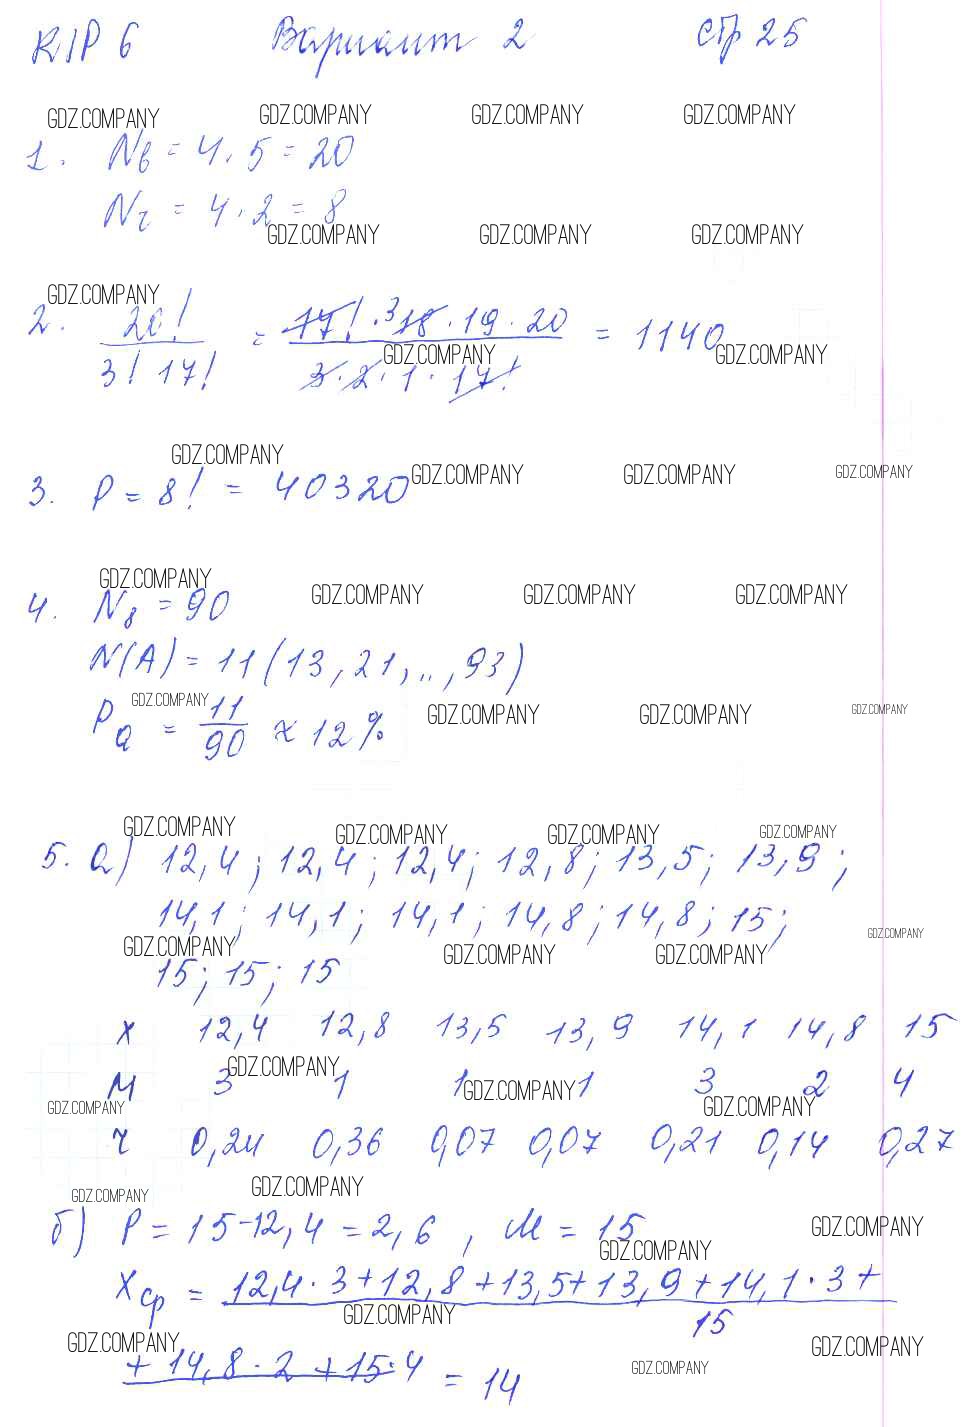 К/Р 6 Вариант 2 стр 25
GDZ.COMPANY GDZ.COMPANY GDZ.COMPANY GDZ.COMPANY
1. Nб = 4 · 5 = 20
Nг = 4 · 2 = 8
GDZ.COMPANY GDZ.COMPANY GDZ.COMPANY
GDZ.COMPANY
2. 20! / 3! 17! = 17! · ³18 · 19 · 20 / 3 · 2 · 1 · 17! = 1140
GDZ.COMPANY GDZ.COMPANY
GDZ.COMPANY GDZ.COMPANY GDZ.COMPANY GDZ.COMPANY
3. P = 8! = 40320
GDZ.COMPANY GDZ.COMPANY GDZ.COMPANY GDZ.COMPANY
4. N8 = 90
N(A) = 11 (13, 21, .., 93)
GDZ.COMPANY GDZ.COMPANY GDZ.COMPANY GDZ.COMPANY
Pa = 11/90 ≈ 12 %
GDZ.COMPANY GDZ.COMPANY GDZ.COMPANY GDZ.COMPANY
5. а) 12,4 ; 12,4 ; 12,4 ; 12,8 ; 13,5 ; 13,9 ;
14,1 ; 14,1 ; 14,1 ; 14,8 ; 14,8 ; 15 ;
GDZ.COMPANY GDZ.COMPANY GDZ.COMPANY GDZ.COMPANY
15 ; 15 ; 15
X 12,4 12,8 13,5 13,9 14,1 14,8 15
GDZ.COMPANY GDZ.COMPANY
М 3 1 1 1 3 2 4
GDZ.COMPANY GDZ.COMPANY
ч 0,24 0,36 0,07 0,07 0,21 0,14 0,27
GDZ.COMPANY GDZ.COMPANY
б) P = 15 - 12,4 = 2,6 , M = 15
GDZ.COMPANY GDZ.COMPANY
Xср = 12,4 · 3 + 12,8 + 13,5 + 13,9 + 14,1 · 3 + / 15
GDZ.COMPANY
GDZ.COMPANY GDZ.COMPANY GDZ.COMPANY
+ 14,8 · 2 + 15 · 4 = 14